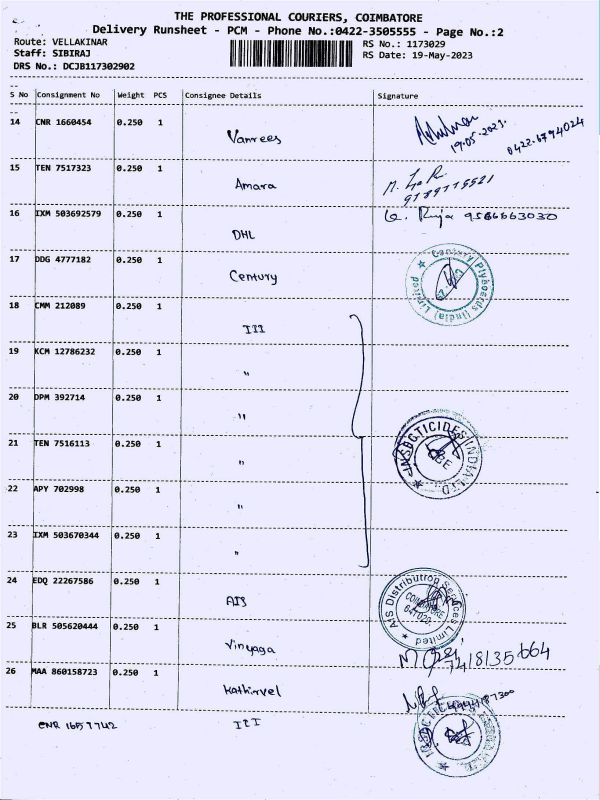 THE PROFESSIONAL COURIERS, COIMBATORE
Delivery Runsheet - PCM - Phone No.:0422-3505555 - Page No.:2
Route: VELLAKINAR
RS No.: 1173029
Staff: SIBIRAJ
RS Date: 19-May-2023
DRS No.: DCJB117302902
S No Consignment No Weight PCS Consignee Details Signature
14 CNR 1660454 0.250 1
Vanrees
19.05.2023.
0422.6794024
15 TEN 7517323 1
Amara
9789775521
16 IXM 503692579 0.250 1
DHL
9566663030
17 DDG 4777182 0.250 1
Century
Century Plyboards (India) Limited
18 CMM 212089 0.250 1
III
19 KCM 12786232 0.250 1
"
20 DPM 392714 0.250 1
"
21 TEN 7516113 0.250 1
"
INSECTICIDES INDIA LTD.
CBE
22 APY 702998 0.250 1
"
23 IXM 503670344 0.250 1
"
24 EDQ 22267586 0.250 1
AIS
AIS Distribution Services Limited
COIMBATORE
641020.
25 BLR 505620444 0.250 1
Vinyaga
26 MAA 860158723 0.250 1
Kathirvel
CNR 1657742 III